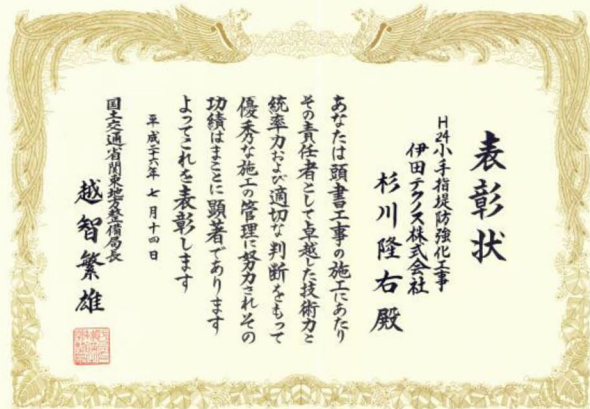 表彰状
H24小手指堤防強化工事
伊田テクノス株式会社
杉川隆右殿
あなたは頭書工事の施工にあたり
その責任者として卓越した技術力と
統率力および適切な判断をもって
優秀な施工の管理に努力されその
功績はまことに顕著であります
よってこれを表彰します
平成二十六年七月十四日
国土交通省関東地方整備局長
越智繁雄